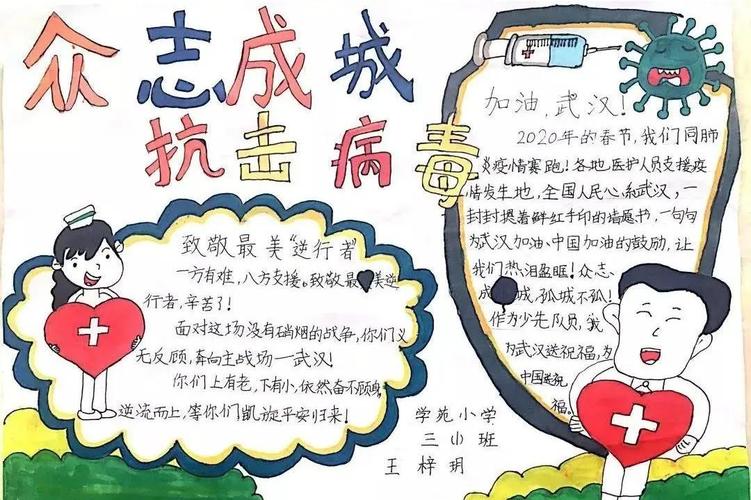 众志成城
抗击病毒
致敬最美“逆行者”
一方有难,八方支援。致敬最美逆
行者,辛苦了!
面对这场没有硝烟的战争,你们义
无反顾,奔向主战场—武汉!
你们上有老,下有小,依然奋不顾身,
逆流而上,等你们凯旋平安归来!
加油,武汉!
2020年的春节,我们同肺
炎疫情赛跑!各地医护人员支援疫
情发生地,全国人民心系武汉,一
封封摁着鲜红手印的请愿书,一句句
为武汉加油、中国加油的鼓励,让
我们热泪盈眶!众志
成城,孤城不孤!
作为少先队员,我
为武汉送祝福,为
中国送祝
福。
学苑小学
三(1)班
王梓玥